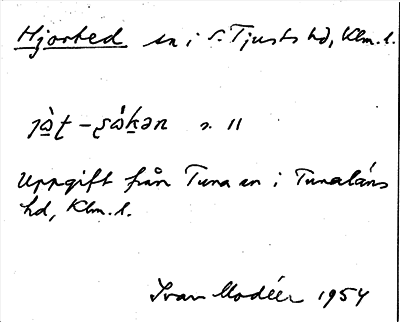 Hjorted sn i S. Tjusts hd, Klm. l.
s. 11
Uppgift från Tuna sn i Tunaläns
hd, Klm. l.
Ivar Modéer 1954